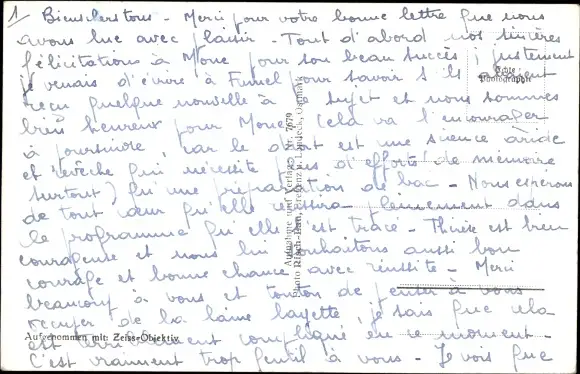 1 Bien chers tous - Merci pour votre bonne lettre que nous
avons lue avec plaisir - Tout d'abord nos sincères
félicitations à Mone pour son beau succès, justement
je venais d'écrire à Fumel pour savoir s'ils avaient
reçu quelque nouvelle à ce sujet et nous sommes
bien heureux pour Mone. Cela va l'encourager
à poursuivre, car le droit est une science aride
et revêche qui nécessite plus d'efforts (de mémoire
surtout) qu'une préparation de bac - Nous espérons
de tout cœur qu'elle réussira pleinement dans
le programme qu'elle s'est tracé - Thérèse est bien
courageuse et nous lui souhaitons aussi bon
courage et bonne chance avec réussite - Merci
beaucoup à vous et tonton de penser à nous
récupérer de la laine layette, je sais que cela
est compliqué en ce moment -
C'est vraiment trop gentil à vous - Je vois que
Echte
Photographie
Aufnahme und Verlag Nr. 7679
Photo Risch-Lau, Bregenz u. Landeck, Ostmark
Aufgenommen mit: Zeiss-Objektiv